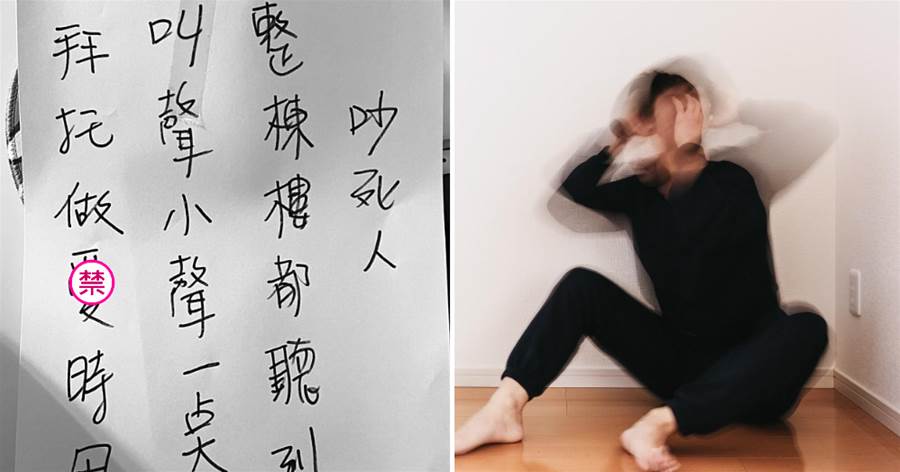 拜托做禁時
叫聲小聲一奌
整棟樓都聽到
吵死人